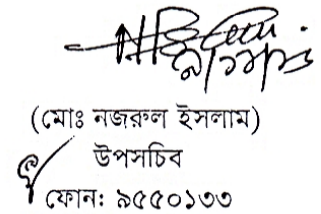 (মোঃ নজরুল ইসলাম)
উপসচিব
ফোন: ৯৫৫০১৩৩